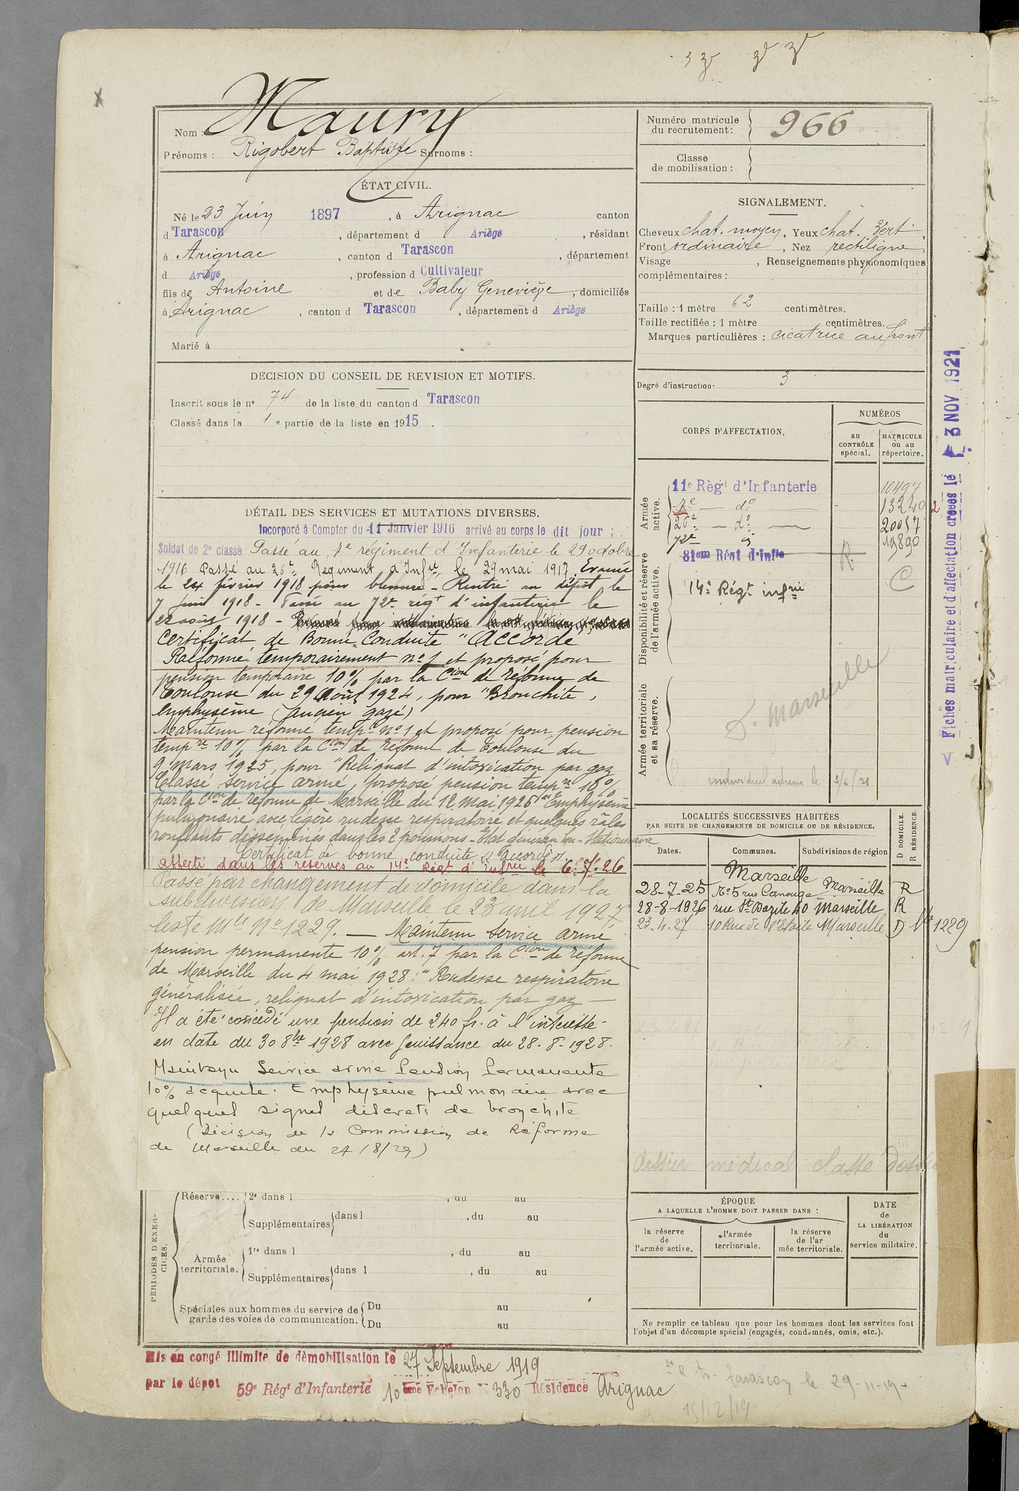 Nom Maury
Prénoms : Rigobert Baptiste Surnoms :
ÉTAT CIVIL.
Né le 23 Juin 1897, à Arignac canton
d Tarascon, département d Ariège, résidant
à Arignac, canton d Tarascon, département
d Ariège, profession d Cultivateur
fils de Antoine et de Baby Geneviève, domiciliés
à Arignac, canton d Tarascon, département d Ariège
Marié à
DECISION DU CONSEIL DE REVISION ET MOTIFS.
Inscrit sous le n° 74 de la liste du canton d Tarascon
Classé dans la 1e partie de la liste en 1915.
DÉTAIL DES SERVICES ET MUTATIONS DIVERSES.
Incorporé à Compter du 11 Janvier 1916 arrivé au corps le dit jour ;
Soldat de 2e classe Passé au 7e régiment d'Infanterie le 29 octobre
1916 Passé au 20e Régiment d'Infie le 29 mai 1917. Evacué
le 24 février 1918 pour blessure - Rentré au dépôt le
7 Juin 1918 - Passé au 72e régt d'infanterie le
22 août 1918 -
Certificat de Bonne Conduite "Accordé"
Réformé temporairement n° 1 et proposé pour
pension temporaire 10% par la Cion de réforme de
Toulouse du 29 Août 1924, pour "Bronchite,
Emphysème (ancien gazé)
Maintenu réformé tempre n° 1 et proposé pour pension
tempre 10% par la Cion de réforme de Toulouse du
9 mars 1925, pour "Reliquat d'intoxication par gaz
Classé service armé, proposé pension tempre 10%
par la Cion de réforme de Marseille du 12 Mai 1926 Emphysème
pulmonaire avec légère rudesse respiratoire et quelques râles
ronflants disséminés dans les 2 poumons - Etat général bon - Stationnaire
Certificat de bonne conduite "Accordé"
affecté dans les réserves au 14e Régt d'Infrie le 6.7.26
Passé par changement de domicile dans la
subdivision de Marseille le 23 avril 1927
liste Mle N° 1229. — Maintenu service armé
pension permanente 10% art. 7 par la Cion de réforme
de Marseille du 4 mai 1928 : "Rudesse respiratoire
généralisée, reliquat d'intoxication par gaz —
Il a été concédé une pension de 240 fr. à l'intéressé
en date du 30 8bre 1928 avec jouissance du 28-8-1928.
Maintenu Service armé Pension Permanente
10% acquise. Emphysème pulmonaire avec
quelques signes discrets de bronchite
(Décision de la Commission de Réforme
de Marseille du 27/8/29)
PÉRIODES D'EXERCICES.
Réserve.... 2e dans l , du au
Supplémentaires dans l , du au
Armée territoriale. 1re dans l , du au
Supplémentaires dans l , du au
Spéciales aux hommes du service de garde des voies de communication. Du au
Du au
Mis en congé illimité de démobilisation le 27 Septembre 1919
par le dépôt 59e Régt d'Infanterie 10 ème Echelon N° 330 Résidence Arignac
Numéro matricule du recrutement : 966
Classe de mobilisation :
SIGNALEMENT.
Cheveux chat. moyen, Yeux chat. vert
Front ordinaire, Nez rectiligne,
Visage , Renseignements physionomiques
complémentaires :
Taille : 1 mètre 62 centimètres.
Taille rectifiée : 1 mètre centimètres.
Marques particulières : cicatrice au front
Degré d'instruction : 3
CORPS D'AFFECTATION.
NUMÉROS
AU CONTRÔLE spécial.
MATRICULE ou au répertoire.
Armée active.
11e Régt d'Infanterie 10494
7e — do — 13240
20e — do — 20057
72e 19890
81em Régt d'Infie R
Disponibilité et réserve de l'armée active.
14e Régt infrie C
Armée territoriale et sa réserve.
S. Marseille
5/6/21
Fiches matriculaire et d'affectation créées le 3 NOV 1921
LOCALITÉS SUCCESSIVES HABITÉES
PAR SUITE DE CHANGEMENTS DE DOMICILE OU DE RÉSIDENCE.
Dates. Communes. Subdivisions de région
D DOMICILE.
R RÉSIDENCE.
Marseille
28-7-25 N° 5 rue Marseille R
28-8-1926 rue 40 Marseille R
23.4.27 10 Rue de l'étoile Marseille D Mle 1229
dossier médical classé
ÉPOQUE
A LAQUELLE L'HOMME DOIT PASSER DANS :
la réserve de l'armée active.
l'armée territoriale.
la réserve de l'armée territoriale.
DATE de LA LIBÉRATION du service militaire.
Ne remplir ce tableau que pour les hommes dont les services font
l'objet d'un décompte spécial (engagés, condamnés, omis, etc.).
Tarascon le 29-11-19-
15/12/19